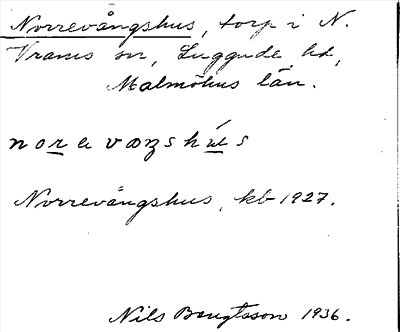 Norrevångshus, torp i N.
Vrams sn, Luggude hd,
Malmöhus län.
Norrevångshus, kb 1927.
Nils Bengtsson 1936.